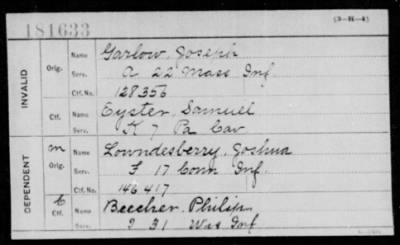 181633
(3-H-4)
INVALID
Orig.
Name Garlow, Joseph
Serv. A 22 Mass Inf.
Ctf. No. 128356
Ctf.
Name Eyster, Samuel
Serv. K 7 Pa Cav
DEPENDENT
m
Orig.
Name Lowndesberry, Joshua
Serv. F 17 Conn Inf.
Ctf. No. 146417
C
Ctf.
Name Beecher, Philip
Serv. I 31 Wis Inf